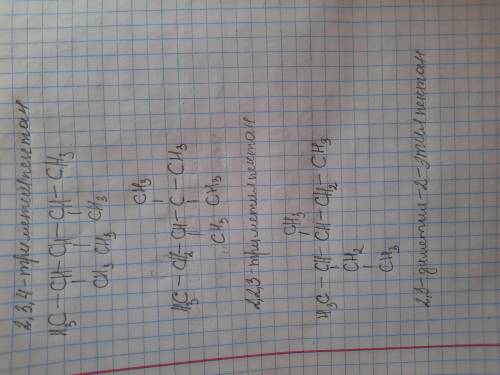 2,3,4-триметилпентан
H₃C-CH-CH-CH-CH₃
CH₃ CH₃ CH₃
CH₃
H₃C-CH₂-CH-C-CH₃
CH₃ CH₃
2,2,3-триметилпентан
CH₃
H₃C-CH-CH-CH₂-CH₃
CH₂
CH₃
2,3-диметил-2-этилпентан